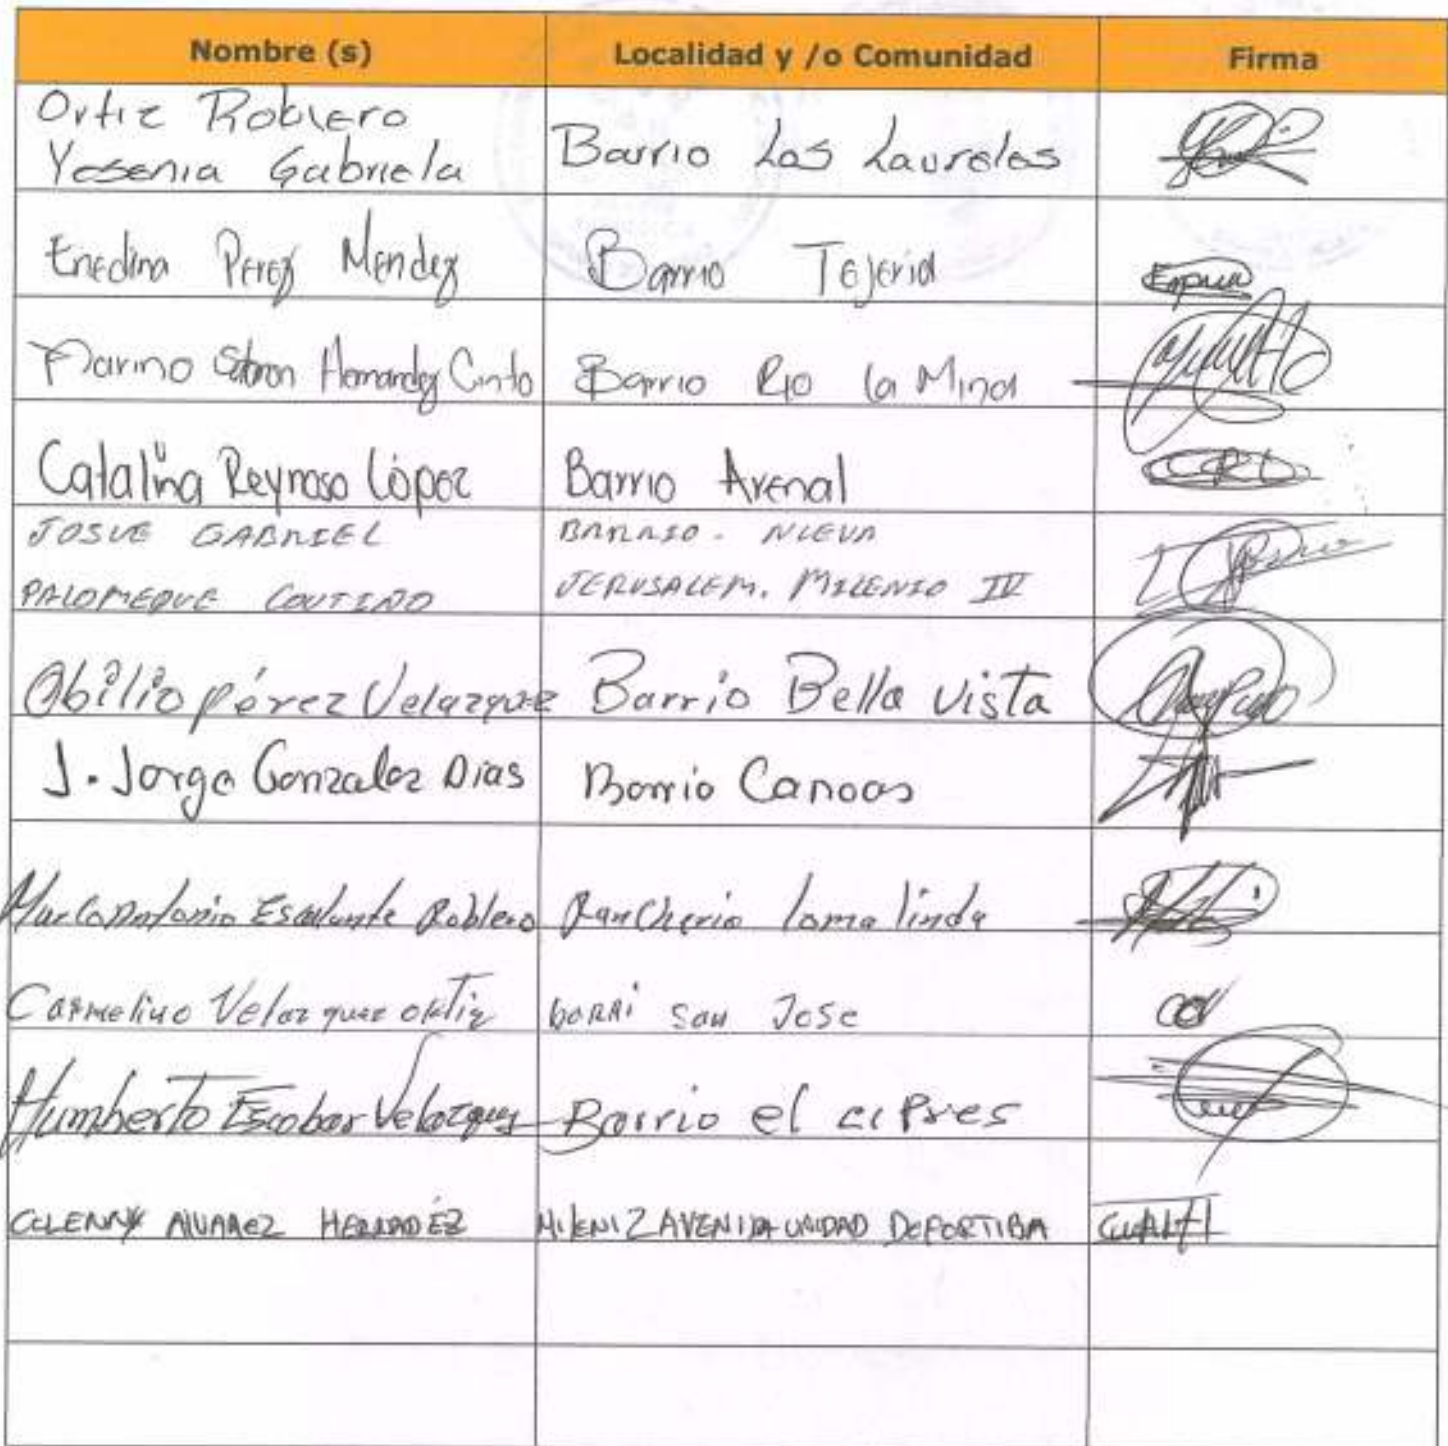 Nombre (s) Localidad y /o Comunidad Firma
Ortiz Roblero
Yesenia Gabriela Barrio Los Laureles
Enedina Perez Mendez Barrio Tejeria
Marino Hernandez Cinto Barrio Rio la Mina
Catalina Reynoso López Barrio Arenal CRL
JOSUE GABRIEL BARRIO. NUEVA
PALOMEQUE COUTIÑO JERUSALEM. MILENIO IV
Obilio pérez Velazquez Barrio Bella vista
J. Jorge Gonzalez Dias Barrio Canoas
Marco Antonio Escalante Roblero Rancheria loma linda
Carmelino Velazquez ortiz barri san Jose
Humberto Escobar Velazquez Barrio el cipres
ALVAREZ HERNADEZ MILENI 2 AVENIDA UNIDAD DEPORTIBA